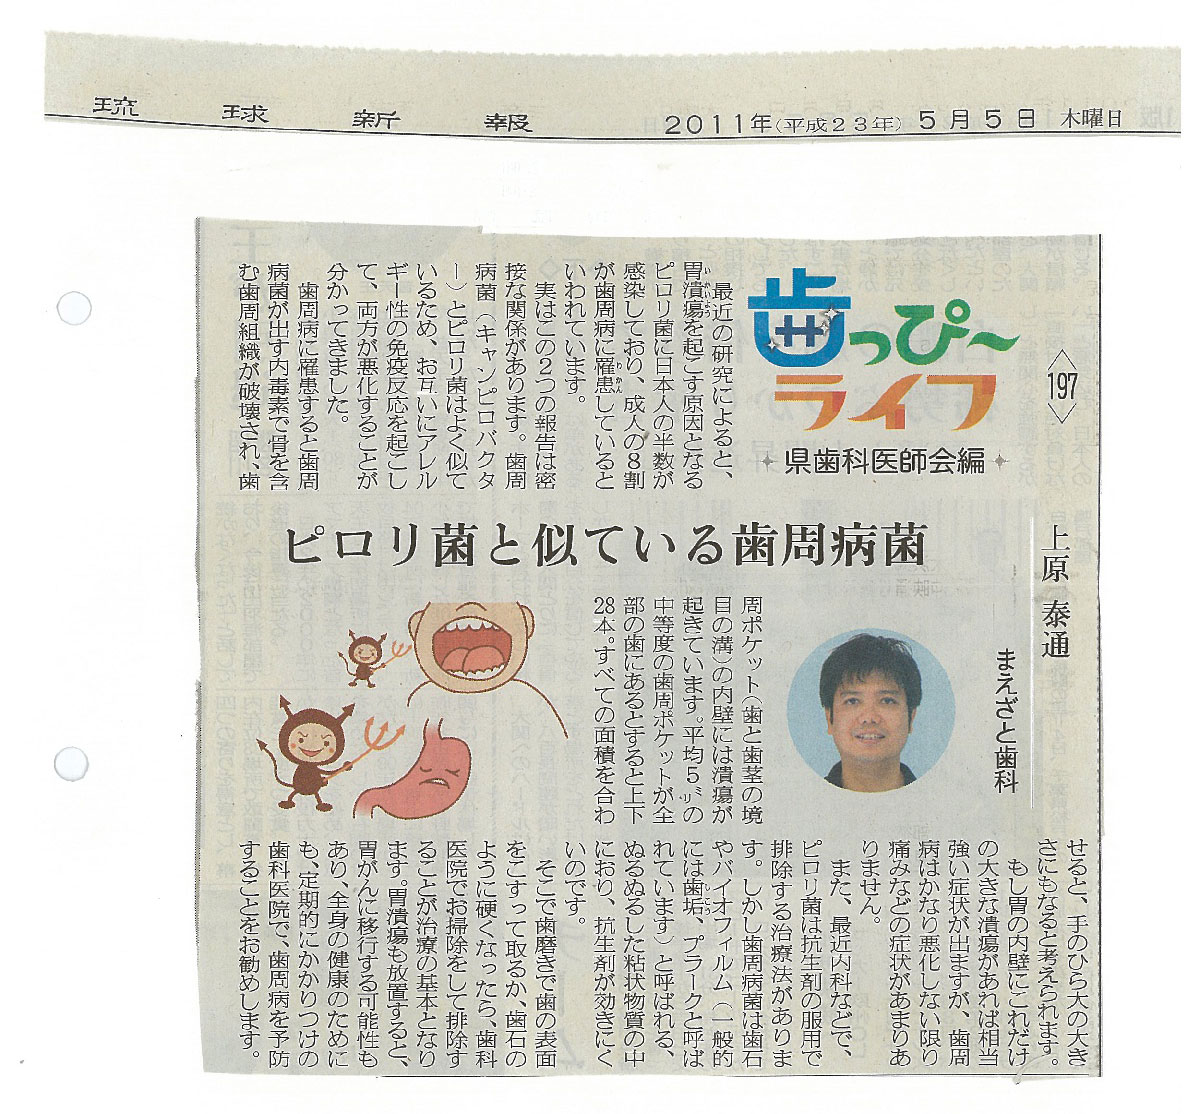 琉球新報 2011年(平成23年)5月5日 木曜日
〈197〉
歯っぴ〜
ライフ
県歯科医師会編
上原 泰通
まえざと歯科
ピロリ菌と似ている歯周病菌
最近の研究によると、
胃潰瘍を起こす原因となる
ピロリ菌に日本人の半数が
感染しており、成人の8割
が歯周病に罹患していると
いわれています。
実はこの2つの報告は密
接な関係があります。歯周
病菌(キャンピロバクタ
ー)とピロリ菌はよく似て
いるため、お互いにアレル
ギー性の免疫反応を起こし
て、両方が悪化することが
分かってきました。
歯周病に罹患すると歯周
病菌が出す内毒素で骨を含
む歯周組織が破壊され、歯
周ポケット(歯と歯茎の境
目の溝)の内壁には潰瘍が
起きています。平均5㍉の
中等度の歯周ポケットが全
部の歯にあるとすると上下
28本。すべての面積を合わ
せると、手のひら大の大き
さにもなると考えられます。
もし胃の内壁にこれだけ
の大きな潰瘍があれば相当
強い症状が出ますが、歯周
病はかなり悪化しない限り
痛みなどの症状があまりあ
りません。
また、最近内科などで、
ピロリ菌は抗生剤の服用で
排除する治療法がありま
す。しかし歯周病菌は歯石
やバイオフィルム(一般的
には歯垢、プラークと呼ば
れています)と呼ばれる、
ぬるぬるした粘状物質の中
におり、抗生剤が効きにく
いのです。
そこで歯磨きで歯の表面
をこすって取るか、歯石の
ように硬くなったら、歯科
医院でお掃除をして排除す
ることが治療の基本となり
ます。胃潰瘍も放置すると、
胃がんに移行する可能性も
あり、全身の健康のために
も、定期的にかかりつけの
歯科医院で、歯周病を予防
することをお勧めします。